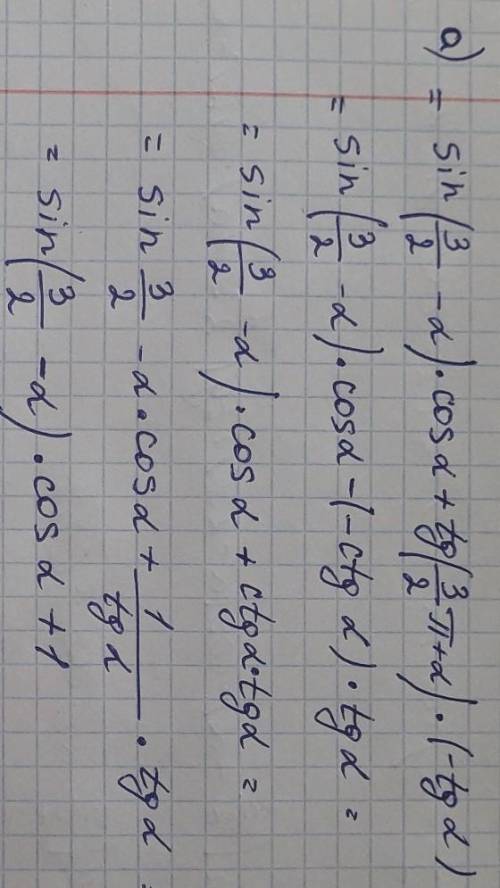 а) = sin(3/2 - α)·cosα + tg(3/2π+α)·(-tgα)
= sin(3/2 - α)·cosα - (-ctgα)·tgα =
= sin(3/2 - α)·cosα + ctgα·tgα =
= sin 3/2 - α·cosα + 1/tgα · tgα =
= sin(3/2 - α)·cosα + 1